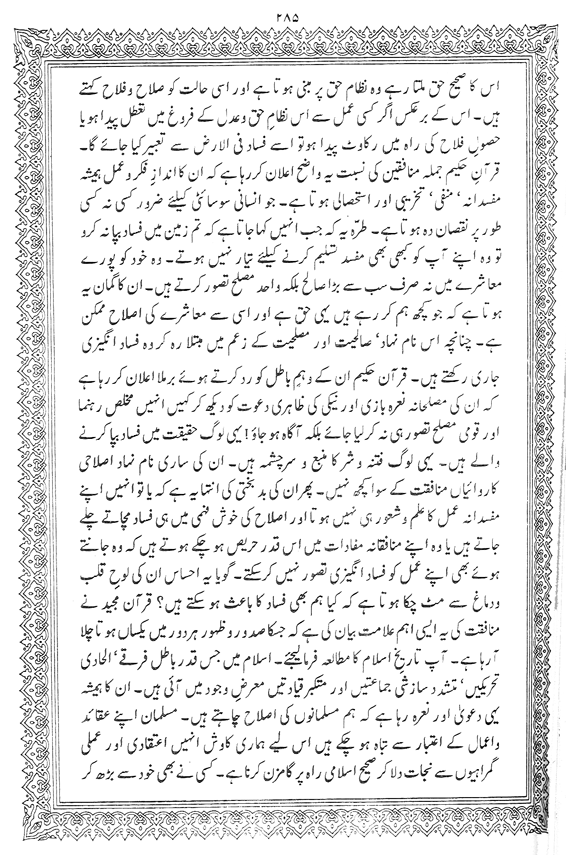 ۲۸۵
اس کا صحیح حق ملتا رہے وہ نظام حق پر مبنی ہوتا ہے اور اسی حالت کو صلاح و فلاح کہتے
ہیں۔ اس کے برعکس اگر کسی عمل سے اس نظامِ حق و عدل کے فروغ میں تعطل پیدا ہو یا
حصولِ فلاح کی راہ میں رکاوٹ پیدا ہو تو اسے فساد فی الارض سے تعبیر کیا جائے گا۔
قرآنِ حکیم جملہ منافقین کی نسبت یہ واضح اعلان کر رہا ہے کہ ان کا اندازِ فکر و عمل ہمیشہ
مفسدانہ‘ منفی‘ تخریبی اور استحصالی ہوتا ہے۔ جو انسانی سوسائٹی کیلئے ضرور کسی نہ کسی
طور پر نقصان دہ ہوتا ہے۔ طرّہ یہ کہ جب انہیں کہا جاتا ہے کہ تم زمین میں فساد بپا نہ کرو
تو وہ اپنے آپ کو کبھی بھی مفسد تسلیم کرنے کیلئے تیار نہیں ہوتے۔ وہ خود کو پورے
معاشرے میں نہ صرف سب سے بڑا صالح بلکہ واحد مصلح تصور کرتے ہیں۔ ان کا گمان یہ
ہوتا ہے کہ جو کچھ ہم کر رہے ہیں یہی حق ہے اور اسی سے معاشرے کی اصلاح ممکن
ہے۔ چنانچہ اس نام نہاد‘ صالحیت اور مصلحیت کے زعم میں مبتلا رہ کر وہ فساد انگیزی
جاری رکھتے ہیں۔ قرآن حکیم ان کے وہمِ باطل کو رد کرتے ہوئے برملا اعلان کر رہا ہے
کہ ان کی مصلحانہ نعرہ بازی اور نیکی کی ظاہری دعوت کو دیکھ کر کہیں انہیں مخلص رہنما
اور قومی مصلح تصور ہی نہ کر لیا جائے بلکہ آگاہ ہو جاؤ! یہی لوگ حقیقت میں فساد بپا کرنے
والے ہیں۔ یہی لوگ فتنہ و شر کا منبع و سرچشمہ ہیں۔ ان کی ساری نام نہاد اصلاحی
کاروائیاں منافقت کے سوا کچھ نہیں۔ پھر ان کی بد بختی کی انتہا یہ ہے کہ یا تو انہیں اپنے
مفسدانہ عمل کا علم و شعور ہی نہیں ہوتا اور اصلاح کی خوش فہمی میں ہی فساد مچاتے چلے
جاتے ہیں یا وہ اپنے منافقانہ مفادات میں اس قدر حریص ہو چکے ہوتے ہیں کہ وہ جانتے
ہوئے بھی اپنے عمل کو فساد انگیزی تصور نہیں کر سکتے۔ گویا یہ احساس ان کی لوحِ قلب
و دماغ سے مٹ چکا ہوتا ہے کہ کیا ہم بھی فساد کا باعث ہو سکتے ہیں؟ قرآن مجید نے
منافقت کی یہ ایسی اہم علامت بیان کی ہے کہ جسکا صدور و ظہور ہر دور میں یکساں ہوتا چلا
آ رہا ہے۔ آپ تاریخِ اسلام کا مطالعہ فرمالیجئے۔ اسلام میں جس قدر باطل فرقے‘ الحادی
تحریکیں‘ متشدد سازشی جماعتیں اور متکبر قیادتیں معرضِ وجود میں آئی ہیں۔ ان کا ہمیشہ
یہی دعویٰ اور نعرہ رہا ہے کہ ہم مسلمانوں کی اصلاح چاہتے ہیں۔ مسلمان اپنے عقائد
و اعمال کے اعتبار سے تباہ ہو چکے ہیں اس لیے ہماری کاوش انہیں اعتقادی اور عملی
گمراہیوں سے نجات دلا کر صحیح اسلامی راہ پر گامزن کرنا ہے۔ کسی نے بھی خود سے بڑھ کر